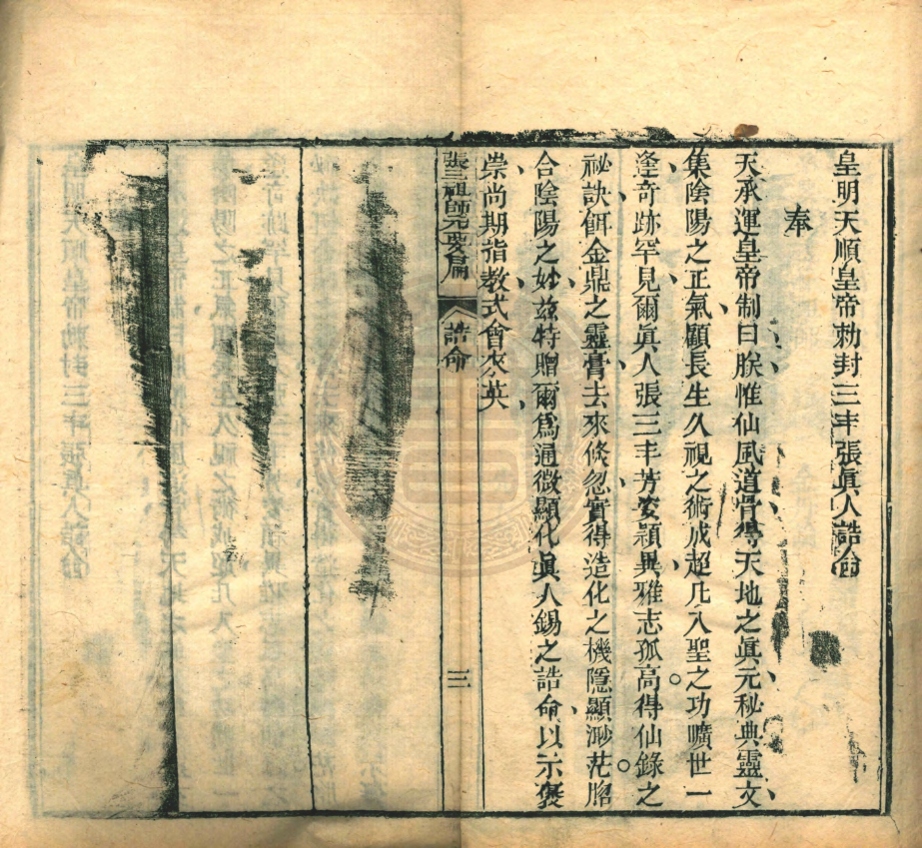 皇明天順皇帝勅封三丰張眞人誥命
奉
天承運皇帝制曰朕惟仙風道骨得天地之眞元秘典靈文
集陰陽之正氣顧長生久視之術成超凡入聖之功曠世一
逢奇跡罕見爾眞人張三丰芳姿頴異雅志孤高得仙錄之
祕訣餌金鼎之靈膏去來倏忽實得造化之機隱顯渺茫脗
合陰陽之妙茲特贈爾爲通微顯化眞人錫之誥命以示褒
崇尚期指教式會來英
張三祖師元要篇 誥命 三